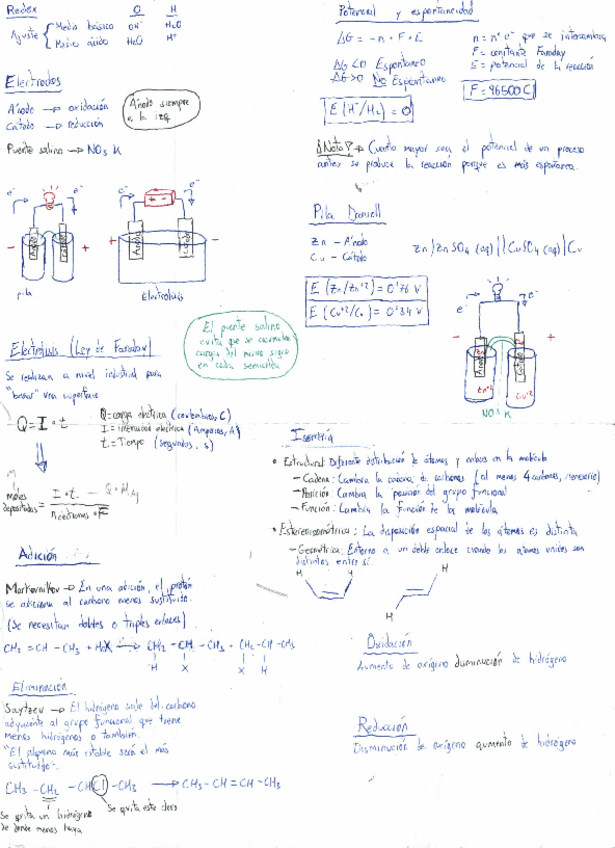 Redox
O H
Ajuste
Medio básico OH⁻ H₂O
Medio ácido H₂O H⁺
Electrodos
Ánodo → oxidación
Cátodo → reducción
Ánodo siempre
a la izq
Puente salino → NO₃ K
e⁻ e⁻
Ánodo Cátodo
- +
pila
e⁻ e⁻
+ -
Ánodo Cátodo
+ -
Electrolisis
El puente salino
evita que se acumulen
carga del mismo signo
en cada semicelda
Electrolisis (Ley de Faraday)
Se realizan a nivel industrial para
una superficie
Q = I · t
Q = carga electrica (coulombios, C)
I = intensidad electrica (Amperios, A)
t = Tiempo (segundos, s)
moles
depositados = I · t
n electrones · F
Adición
Markovnikov → En una adición, el protón
se adiciona al carbono menos sustituido.
(Se necesitan dobles o triples enlaces)
CH₂ = CH - CH₃ + HX → CH₂ - CH - CH₃ + CH₂ - CH - CH₃
H X X H
Eliminación
Saytzev → El hidrógeno sale del carbono
adyacente al grupo funcional que tiene
menos hidrógenos o también.
"El alqueno más estable será el más
sustituido".
CH₃ - CH₂ - CHCl - CH₃ → CH₃ - CH = CH - CH₃
Se quita un hidrógeno
de donde menos haya
Se quita este cloro
Potencial y espontaneidad
ΔG = -n · F · E
ΔG < 0 Espontaneo
ΔG > 0 No Espontaneo
n = nº e⁻ que se intercambia
F = constante Faraday
E = potencial de la reacción
F = 96500 C
E (H⁺/H₂) = 0
¡Nota! → Cuanto mayor sea el potencial de un proceso
antes se produce la reacción porque es más espontanea.
Pila Daniell
Zn - Ánodo
Cu - Cátodo
Zn / ZnSO₄ (aq) || CuSO₄ (aq) | Cu
E (Zn/Zn⁺²) = 0'76 V
E (Cu⁺²/Cu) = 0'34 V
e⁻ e⁻
- +
Ánodo Cátodo
Zn⁺² Cu⁺²
NO₃ K
Isomería
• Estructural: Diferente distribución de átomos y enlaces en la molécula
- Cadena: Cambia la cadena de carbonos (al menos 4 carbonos, necesario)
- Posición: Cambia la posición del grupo funcional
- Función: Cambia la función de la molécula
• Estereogeométrica: La disposición espacial de los átomos es distinta
- Geométrica: Entorno a un doble enlace cuando los átomos unidos son
distintos entre sí.
H H
H
H
Oxidación
Aumento de oxígeno disminución de hidrógeno
Reducción
Disminución de oxígeno aumento de hidrógeno